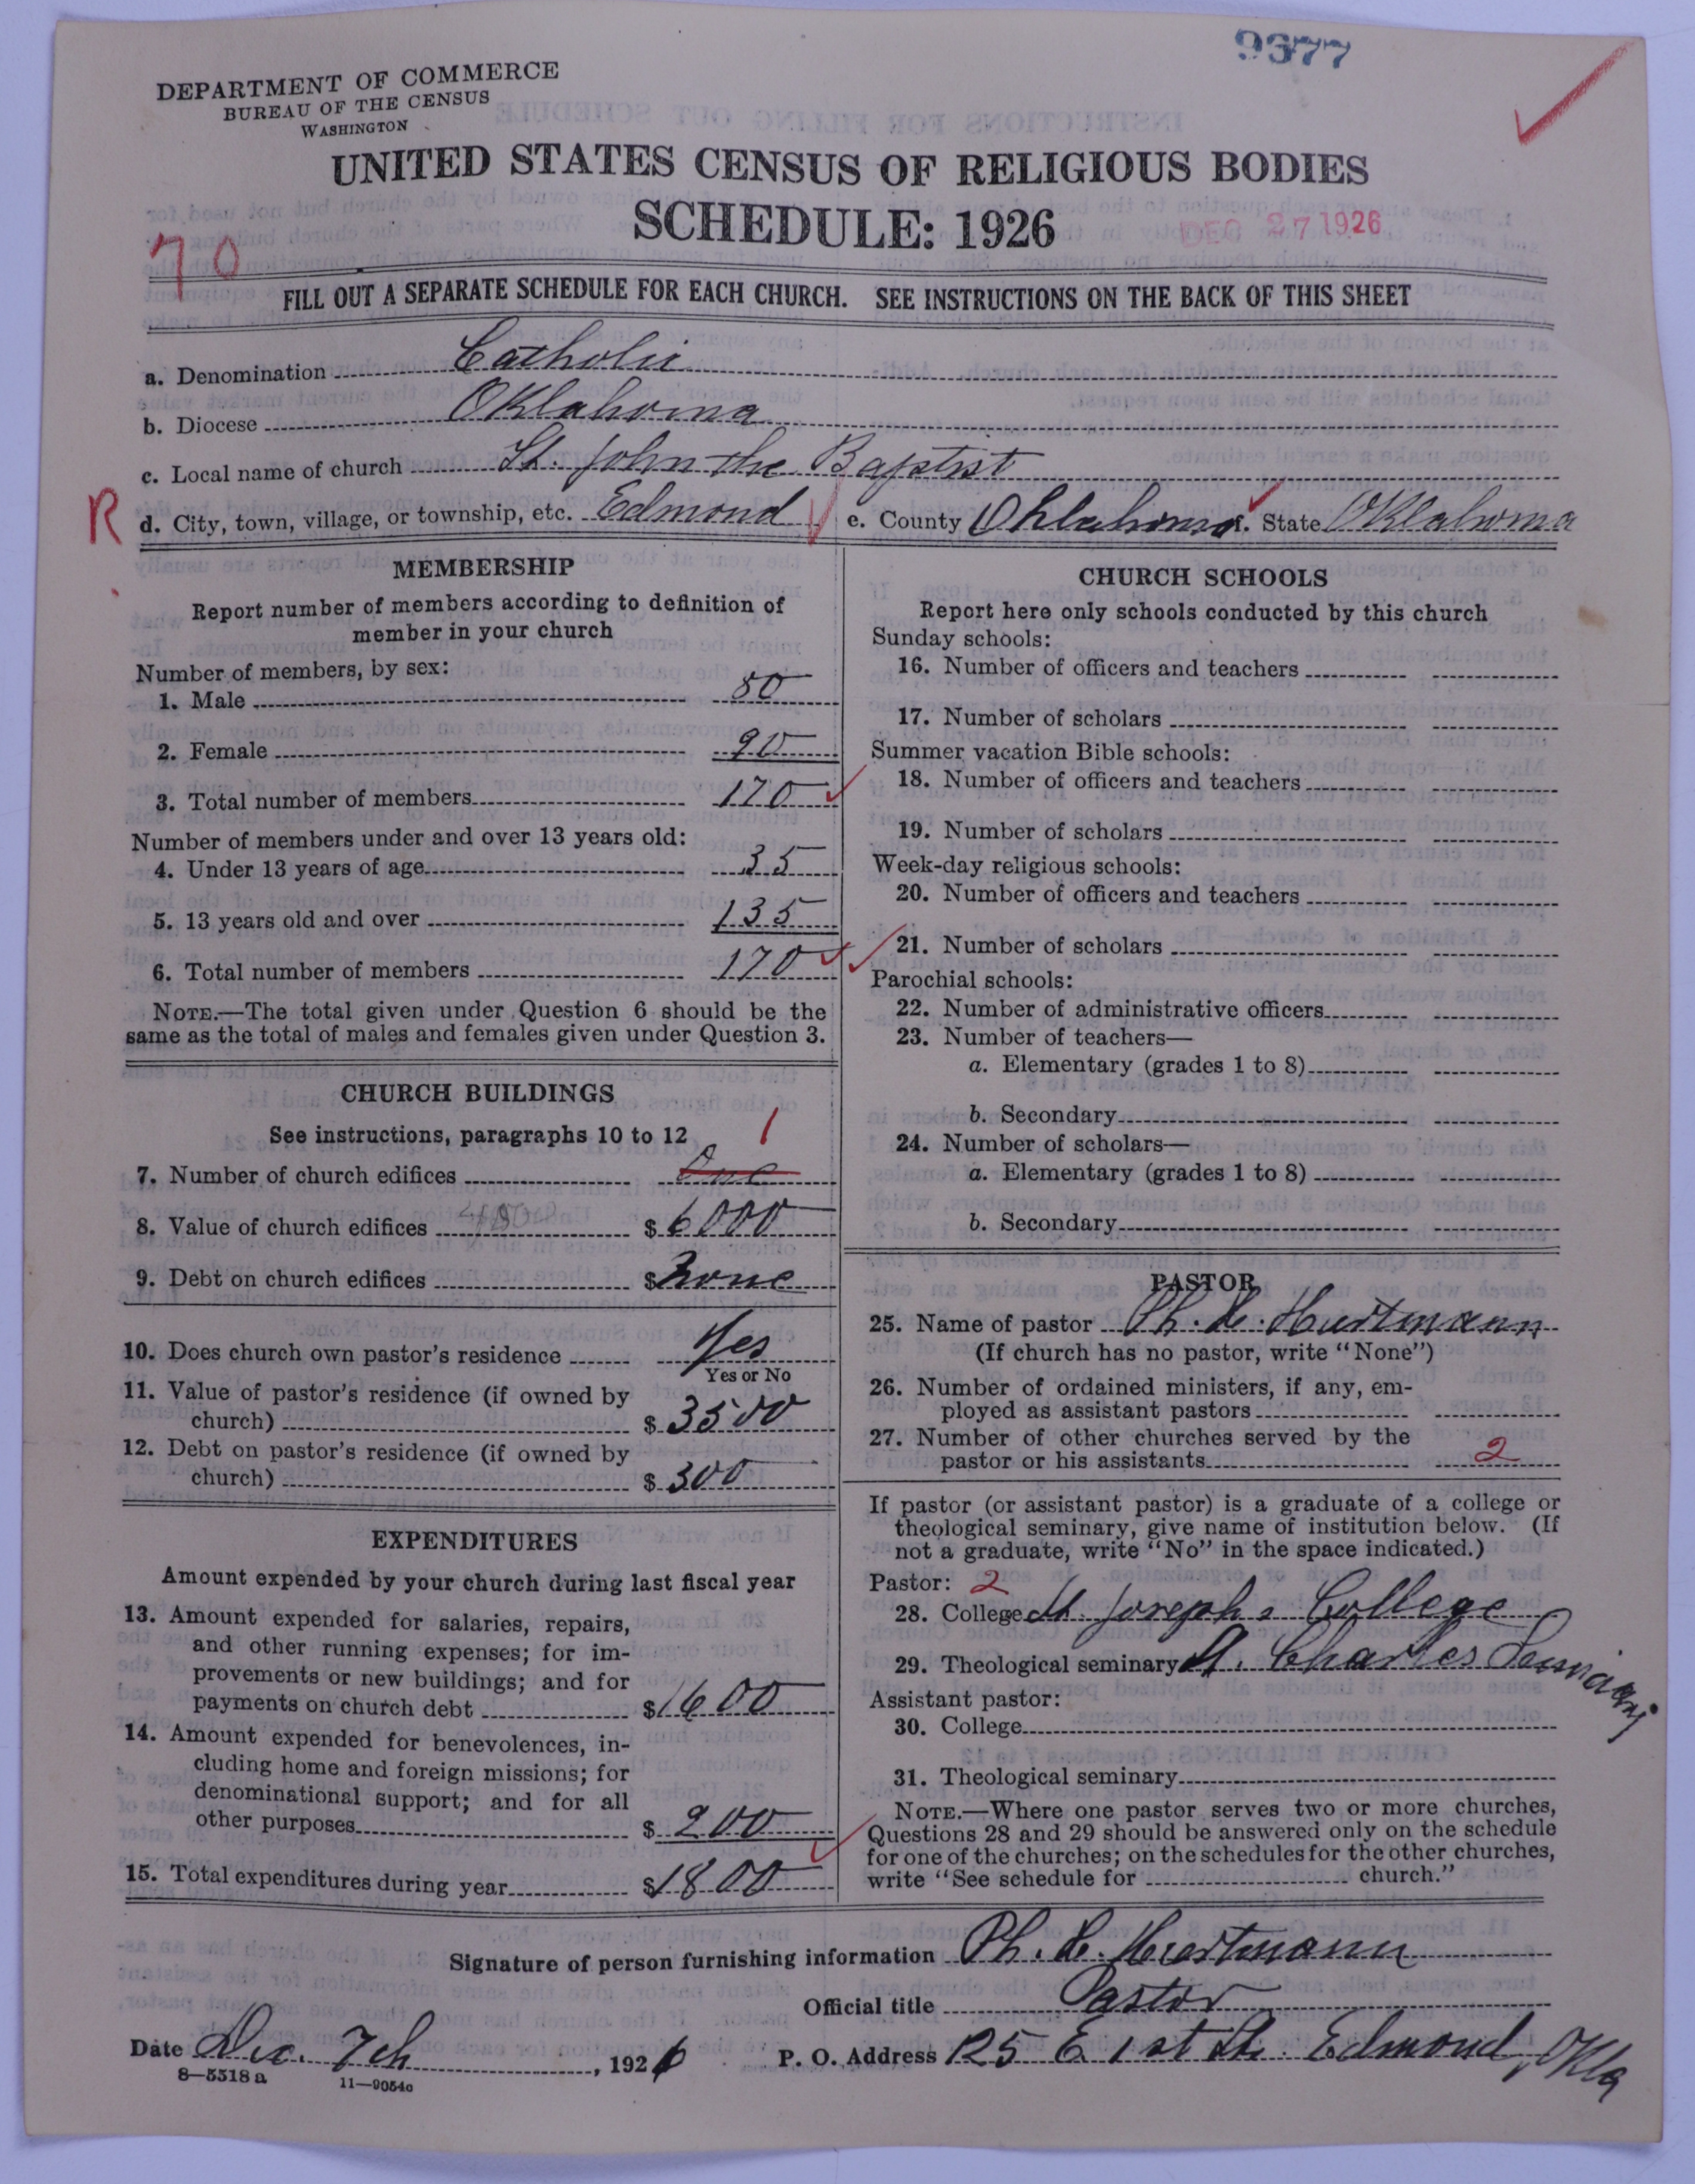 9377
DEPARTMENT OF COMMERCE
BUREAU OF THE CENSUS
WASHINGTON
UNITED STATES CENSUS OF RELIGIOUS BODIES
SCHEDULE: 1926
DEC 27 1926
70
FILL OUT A SEPARATE SCHEDULE FOR EACH CHURCH. SEE INSTRUCTIONS ON THE BACK OF THIS SHEET
a. Denomination Catholic
b. Diocese Oklahoma
c. Local name of church St. John the Baptist
R d. City, town, village, or township, etc. Edmond e. County Oklahoma f. State Oklahoma
MEMBERSHIP
Report number of members according to definition of
member in your church
Number of members, by sex:
1. Male 80
2. Female 90
3. Total number of members 170
Number of members under and over 13 years old:
4. Under 13 years of age 35
5. 13 years old and over 135
6. Total number of members 170
NOTE.—The total given under Question 6 should be the
same as the total of males and females given under Question 3.
CHURCH BUILDINGS
See instructions, paragraphs 10 to 12 1
7. Number of church edifices One
8. Value of church edifices $ 6000
9. Debt on church edifices $ None
10. Does church own pastor's residence Yes
Yes or No
11. Value of pastor's residence (if owned by
church) $ 3500
12. Debt on pastor's residence (if owned by
church) $ 300
EXPENDITURES
Amount expended by your church during last fiscal year
13. Amount expended for salaries, repairs,
and other running expenses; for im-
provements or new buildings; and for
payments on church debt $ 1600
14. Amount expended for benevolences, in-
cluding home and foreign missions; for
denominational support; and for all
other purposes $ 200
15. Total expenditures during year $ 1800
CHURCH SCHOOLS
Report here only schools conducted by this church
Sunday schools:
16. Number of officers and teachers
17. Number of scholars
Summer vacation Bible schools:
18. Number of officers and teachers
19. Number of scholars
Week-day religious schools:
20. Number of officers and teachers
21. Number of scholars
Parochial schools:
22. Number of administrative officers
23. Number of teachers—
a. Elementary (grades 1 to 8)
b. Secondary
24. Number of scholars—
a. Elementary (grades 1 to 8)
b. Secondary
PASTOR
25. Name of pastor Ph. L. Hurtmann
(If church has no pastor, write "None")
26. Number of ordained ministers, if any, em-
ployed as assistant pastors
27. Number of other churches served by the
pastor or his assistants 2
If pastor (or assistant pastor) is a graduate of a college or
theological seminary, give name of institution below. (If
not a graduate, write "No" in the space indicated.)
Pastor: 2
28. College St Josephs College
29. Theological seminary St. Charles Seminary
Assistant pastor:
30. College
31. Theological seminary
NOTE.—Where one pastor serves two or more churches,
Questions 28 and 29 should be answered only on the schedule
for one of the churches; on the schedules for the other churches,
write "See schedule for church."
Signature of person furnishing information Ph. L. Hurtmann
Official title Pastor
Date Dec. 7th, 1926 P. O. Address 125 E 1st St. Edmond, Okla
8—5518 a 11—9054a